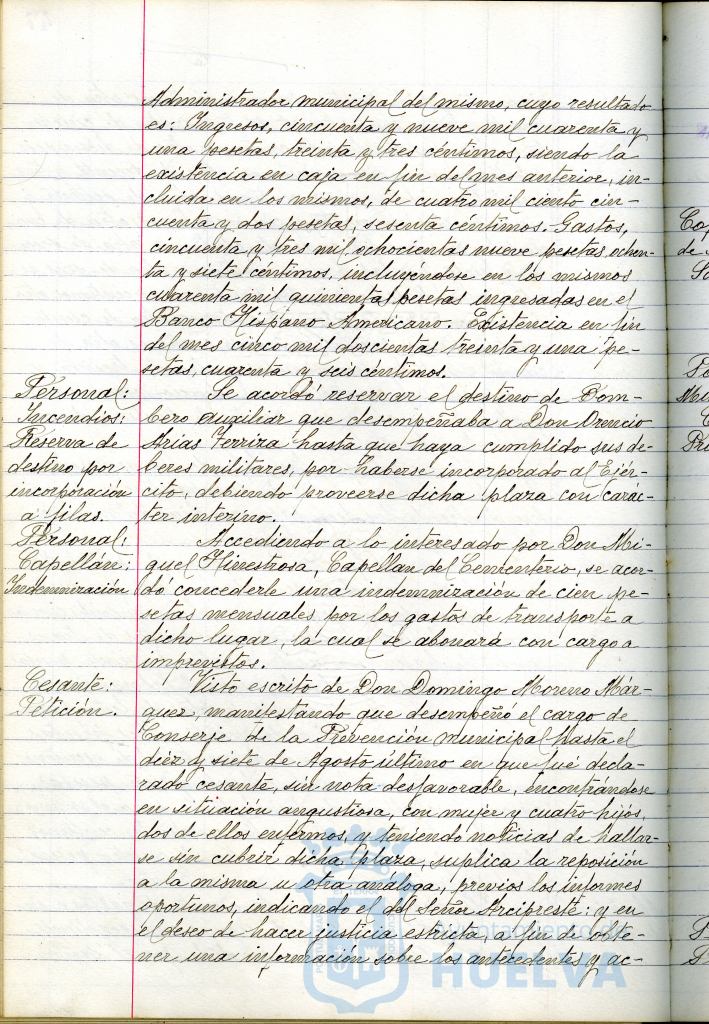 Administrador municipal del mismo, cuyo resultado
es: Ingresos, cincuenta y nueve mil cuarenta y
una pesetas, treinta y tres céntimos, siendo la
existencia en caja en fin del mes anterior, in-
cluida en los mismos, de cuatro mil ciento cin-
cuenta y dos pesetas, sesenta céntimos. Gastos,
cincuenta y tres mil ochocientas nueve pesetas, ochen-
ta y siete céntimos, incluyendose en los mismos
cuarenta mil quinientas pesetas ingresadas en el
Banco Hispano Americano. Existencia en fin
del mes cinco mil doscientas treinta y una pe-
setas, cuarenta y seis céntimos.
Personal:
Incendios:
Reserva de
destino por
incorporación
a filas.
Se acordó reservar el destino de Bom-
bero auxiliar que desempeñaba a Don Orencio
Arias Ferriza hasta que haya cumplido sus de-
beres militares, por haberse incorporado al Ejér-
cito, debiendo proveerse dicha plaza con carác-
ter interino.
Personal:
Capellán:
Indemnización
Accediendo a lo interesado por Don Mi-
guel Hinestrosa, Capellan del Cementerio, se acor-
dó concederle una indemnización de cien pe-
setas mensuales por los gastos de transporte a
dicho lugar, la cual se abonará con cargo a
imprevistos.
Cesante:
Petición.
Visto escrito de Don Domingo Moreno Már-
quez, manifestando que desempeñó el cargo de
Conserje de la Prevención municipal hasta el
diez y siete de Agosto último en que fué decla-
rado cesante, sin nota desfavorable, encontrándose
en situación angustiosa, con mujer y cuatro hijos,
dos de ellos enfermos, y teniendo noticias de hallar-
se sin cubrir dicha plaza, suplica la reposición
a la misma u otra análoga, previos los informes
oportunos, indicando el del Señor Arcipreste: y en
el deseo de hacer justicia estricta, a fin de obte-
ner una información sobre los antecedentes y ac-
Ayuntamiento de
HUELVA